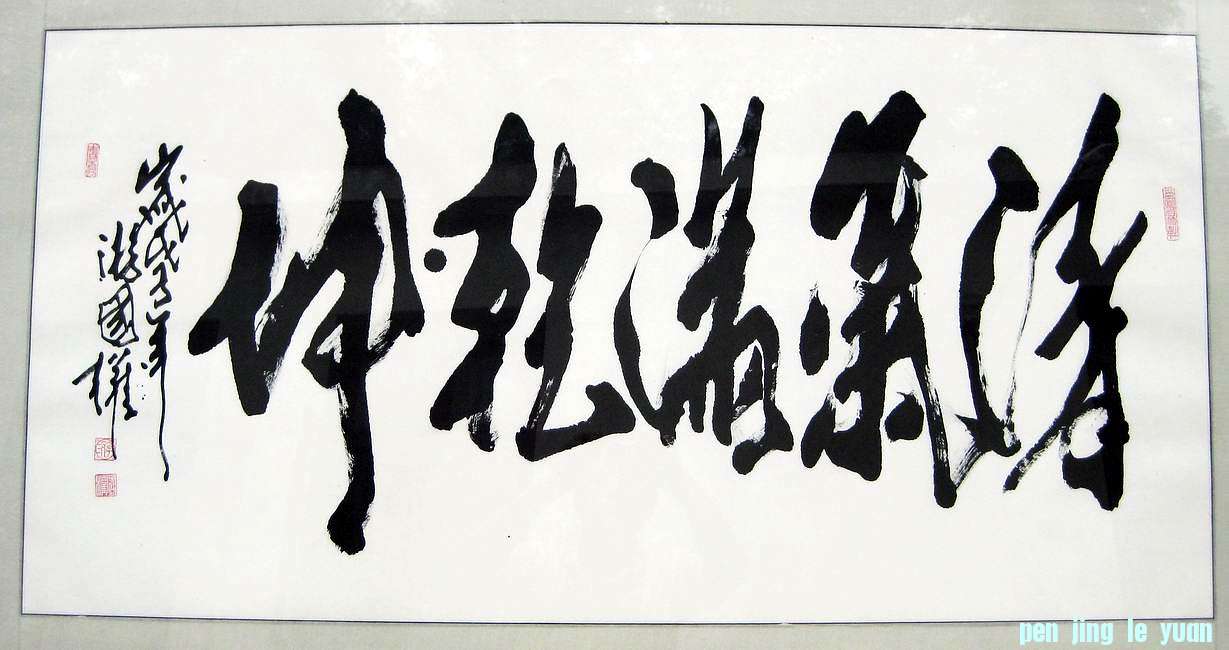 清氣滿乾坤
歲戊子年
游國權
pen jing le yuan